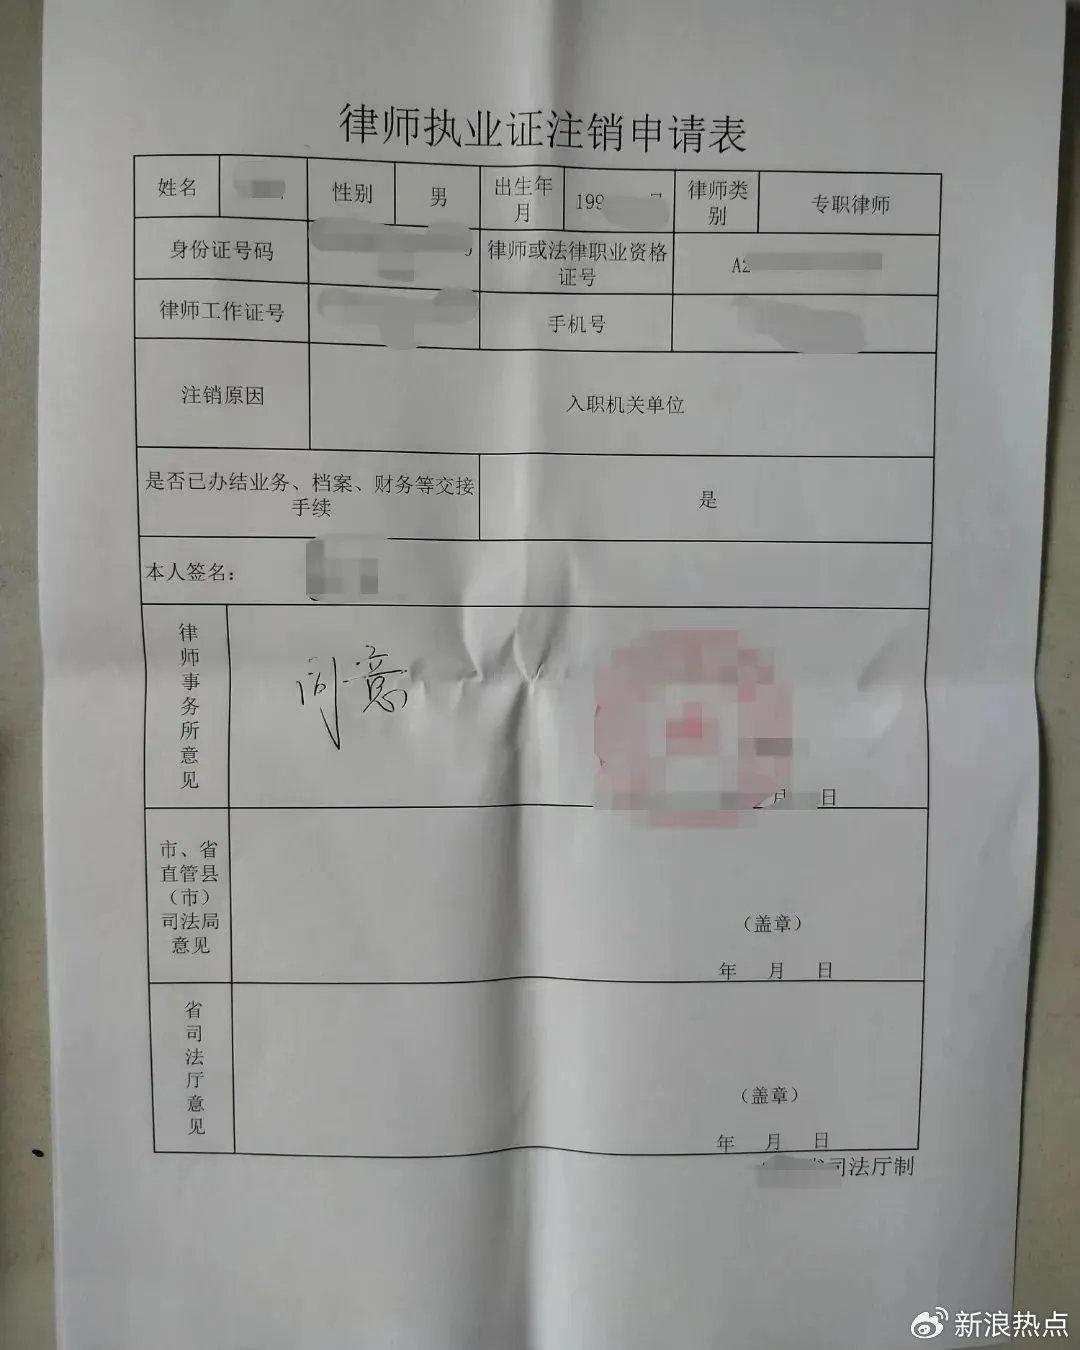 律师执业证注销申请表
姓名 性别 男 出生年月 199 律师类别 专职律师
身份证号码 律师或法律职业资格证号 A2
律师工作证号 手机号
注销原因 入职机关单位
是否已办结业务、档案、财务等交接手续 是
本人签名：
律师事务所意见 同意
月 日
市、省直管县（市）司法局意见
（盖章）
年 月 日
省司法厅意见
（盖章）
年 月 日
省司法厅制
新浪热点